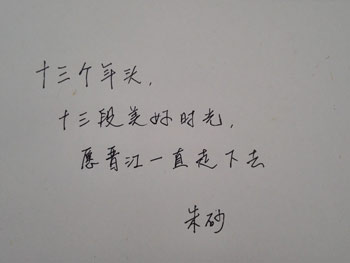 十三个年头,
十三段美好时光,
愿晋江一直走下去
朱砂